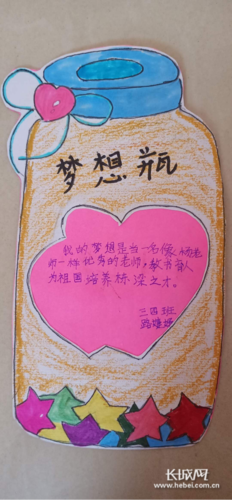 梦想瓶
我的梦想是当一名像杨老
师一样优秀的老师，教书育人
为祖国培养栋梁之才。
三四班
长城网
www.hebei.com.cn